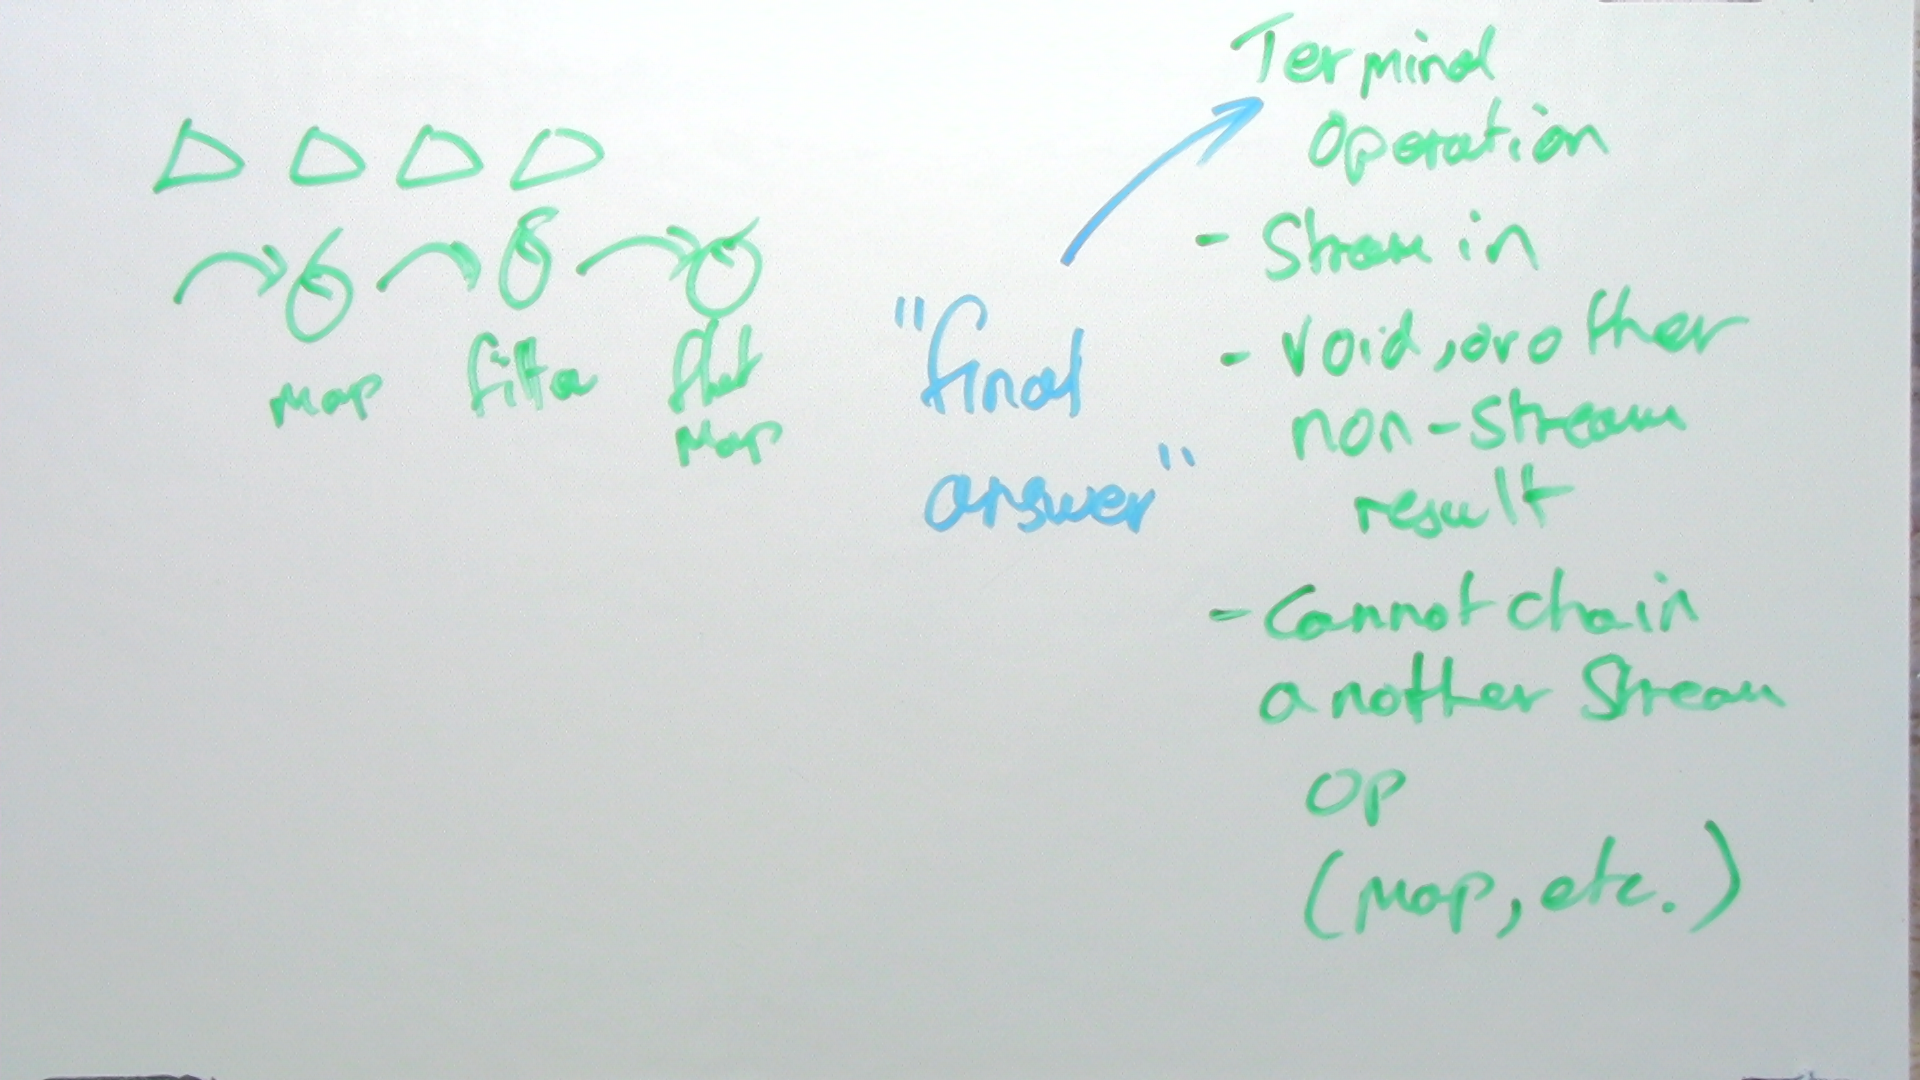 map filter flat
map
"final
answer"
Terminal
Operation
- Stream in
- void, or other
non-stream
result
- Cannot chain
another Stream
op
(map, etc.)